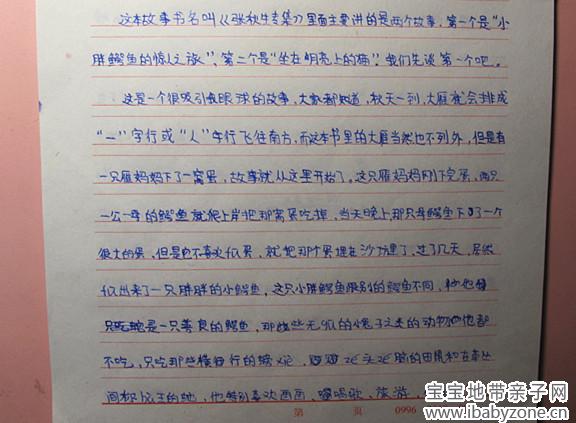 这本故事书名叫《张秋生专集》里面主要讲的是两个故事，第一个是“小
胖鳄鱼的惊人之旅”，第二个是“坐在明亮上的梅”，我们先谈第一个吧。
这是一个很吸引我眼球的故事，大家都知道，秋天一到，大雁就会排成
“一”字行或“人”字行飞往南方，而这本书里的大雁当然也不列外，但是有
一只雁妈妈下了一窝蛋，故事就从这里开始了。这只雁妈妈刚下完蛋，两只
一公一母的鳄鱼就爬上岸把那窝蛋吃掉，当天晚上那只母鳄鱼下了一个
很大的蛋，但是它不喜欢似蛋，就把那个蛋埋在沙子里了，过了几天，居然
似出来了一只胖胖的小鳄鱼，这只小胖鳄鱼跟别的鳄鱼不同，他
是一只善良的鳄鱼，那些无
的兔子之类的动物他都
不吃，只吃那些横行的
的田鼠和在
的蛇，他特别喜欢画画，唱歌，旅游，
第 页 0996
宝宝地带亲子网
www.ibabyzone.cn